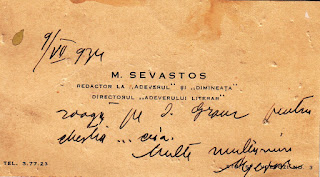 9/VII 934
M. SEVASTOS
REDACTOR LA „ADEVERUL" ȘI „DIMINEAȚA"
DIRECTORUL „ADEVERULUI LITERAR"
roagă pe D. pentru
chestia ...
Multe mulțumiri
TEL. 3.77.23